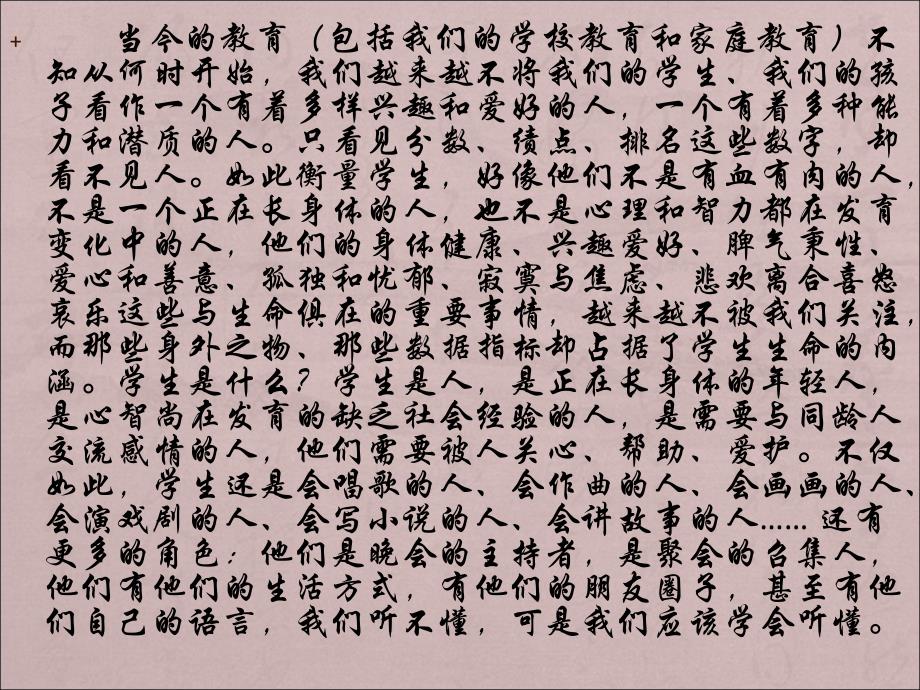 当今的教育（包括我们的学校教育和家庭教育）不
知从何时开始，我们越来越不将我们的学生、我们的孩
子看作一个有着多样兴趣和爱好的人，一个有着多种能
力和潜质的人。只看见分数、绩点、排名这些数字，却
看不见人。如此衡量学生，好像他们不是有血有肉的人，
不是一个正在长身体的人，也不是心理和智力都在发育
变化中的人，他们的身体健康、兴趣爱好、脾气秉性、
爱心和善意、孤独和忧郁、寂寞与焦虑、悲欢离合喜怒
哀乐这些与生命俱在的重要事情，越来越不被我们关注，
而那些身外之物、那些数据指标却占据了学生生命的内
涵。学生是什么？学生是人，是正在长身体的年轻人，
是心智尚在发育的缺乏社会经验的人，是需要与同龄人
交流感情的人，他们需要被人关心、帮助、爱护。不仅
如此，学生还是会唱歌的人、会作曲的人、会画画的人、
会演戏剧的人、会写小说的人、会讲故事的人……还有
更多的角色：他们是晚会的主持者，是聚会的召集人，
他们有他们的生活方式，有他们的朋友圈子，甚至有他
们自己的语言，我们听不懂，可是我们应该学会听懂。